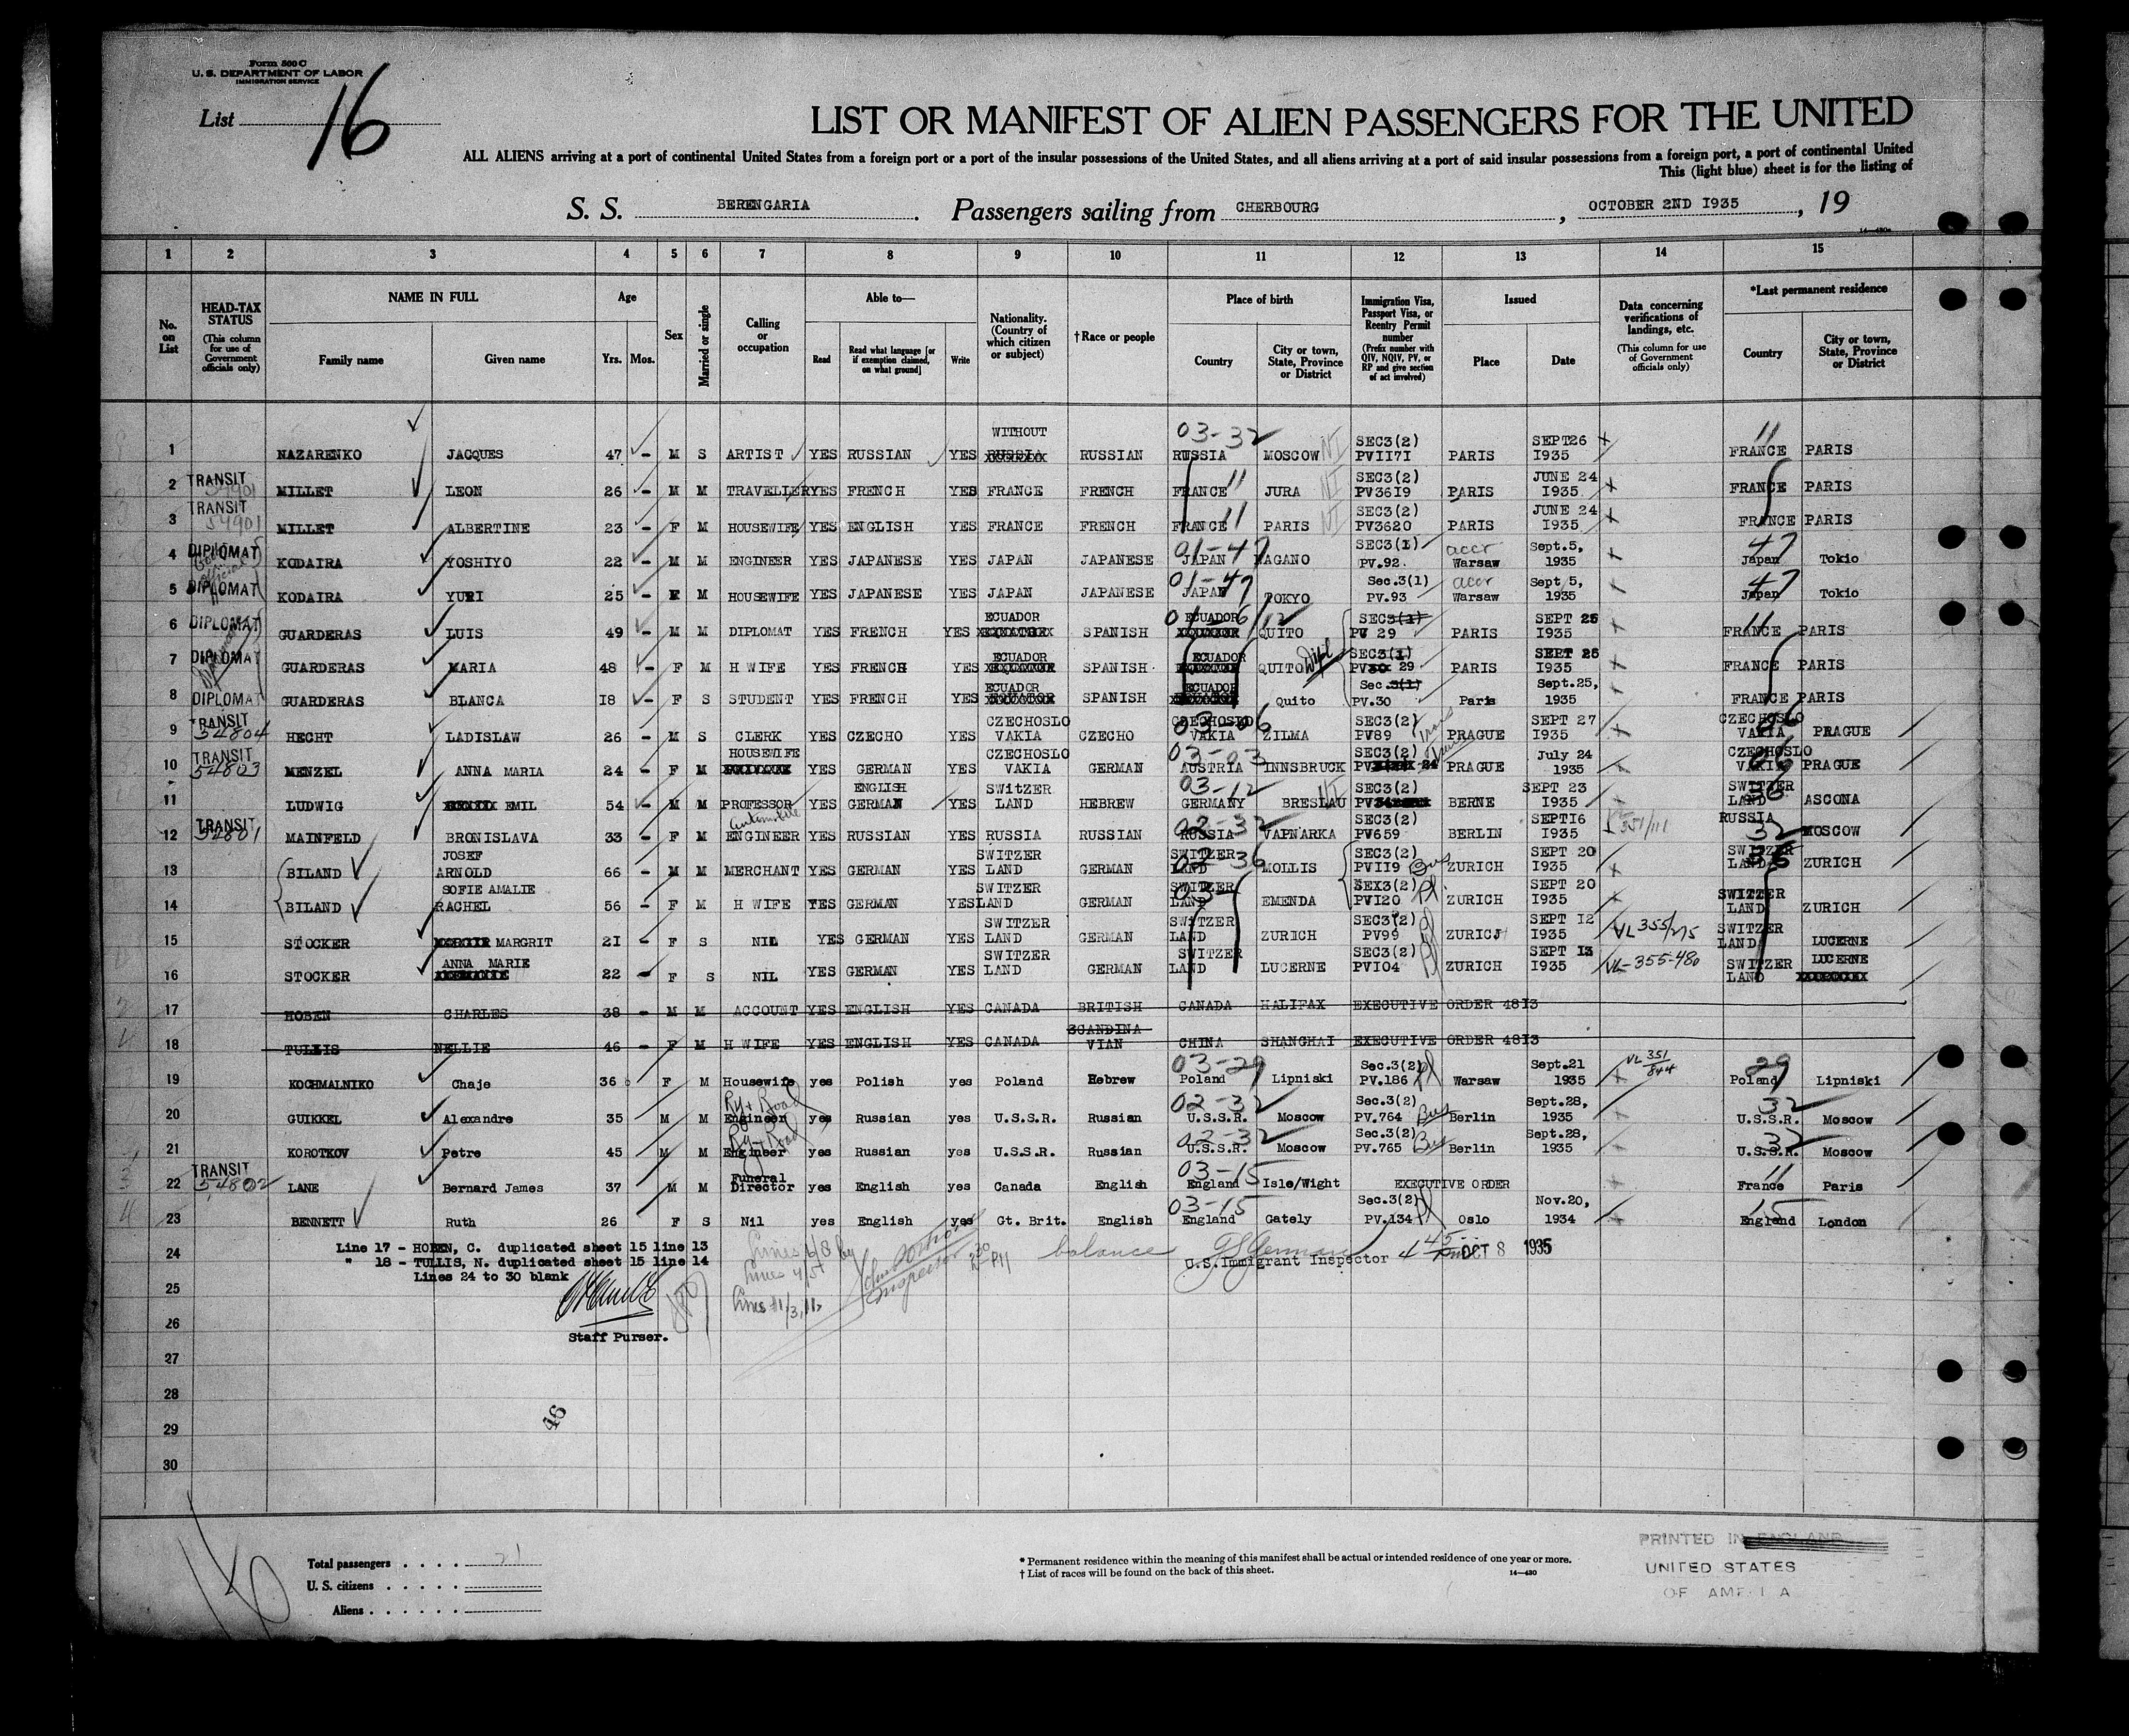 Form 500 C
U. S. DEPARTMENT OF LABOR
IMMIGRATION SERVICE
List 16
LIST OR MANIFEST OF ALIEN PASSENGERS FOR THE UNITED
ALL ALIENS arriving at a port of continental United States from a foreign port or a port of the insular possessions of the United States, and all aliens arriving at a port of said insular possessions from a foreign port, a port of continental United
This (light blue) sheet is for the listing of
S. S. BERENGARIA. Passengers sailing from CHERBOURG, OCTOBER 2ND I935, 19
14—480
1 2 3 4 5 6 7 8 9 10 11 12 13 14 15
No. on List
HEAD-TAX STATUS
(This column for use of Government officials only)
NAME IN FULL
Family name Given name
Age
Yrs. Mos.
Sex
Married or single
Calling or occupation
Able to—
Read
Read what language [or if exemption claimed, on what ground]
Write
Nationality. (Country of which citizen or subject)
†Race or people
Place of birth
Country
City or town, State, Province or District
Immigration Visa, Passport Visa, or Reentry Permit number
(Prefix number with QIV, NQIV, PV, or RP and give section of act involved)
Issued
Place Date
Data concerning verifications of landings, etc.
(This column for use of Government officials only)
*Last permanent residence
Country
City or town, State, Province or District
1 NAZARENKO JACQUES 47 - M S ARTIST YES RUSSIAN YES WITHOUT RUSSIAN 03-32 RUSSIA MOSCOW NI SEC3(2) PVII7I PARIS SEPT26 I935 11 FRANCE PARIS
2 TRANSIT 54901 MILLET LEON 26 - M M TRAVELLER YES FRENCH YES FRANCE FRENCH FRANCE 11 JURA NI SEC3(2) PV36I9 PARIS JUNE 24 I935 FRANCE PARIS
3 TRANSIT 54901 MILLET ALBERTINE 23 - F M HOUSEWIFE YES ENGLISH YES FRANCE FRENCH FRANCE 11 PARIS NI SEC3(2) PV3620 PARIS JUNE 24 I935 FRANCE PARIS
4 DIPLOMAT KODAIRA YOSHIYO 22 - M M ENGINEER YES JAPANESE YES JAPAN JAPANESE 01-47 JAPAN NAGANO SEC3(1) PV.92. accr Warsaw Sept.5, 1935 47 Japan Tokio
5 DIPLOMAT KODAIRA YURI 25 - F M HOUSEWIFE YES JAPANESE YES JAPAN JAPANESE 01-47 JAPAN TOKYO Sec.3(1) PV.93 accr Warsaw Sept 5, 1935 47 Japan Tokio
6 DIPLOMAT GUARDERAS LUIS 49 - M M DIPLOMAT YES FRENCH YES ECUADOR SPANISH ECUADOR QUITO SEC3(1) PV 29 PARIS SEPT 25 I935 11 FRANCE PARIS
7 DIPLOMAT GUARDERAS MARIA 48 - F M H WIFE YES FRENCH YES ECUADOR SPANISH ECUADOR QUITO Dipl SEC3(1) PV30 29 PARIS SEPT 25 I935 FRANCE PARIS
8 DIPLOMAT GUARDERAS BLANCA I8 - F S STUDENT YES FRENCH YES ECUADOR SPANISH ECUADOR Quito Sec.3(1) PV.30 Paris Sept.25, 1935 FRANCE PARIS
9 TRANSIT 54804 HECHT LADISLAW 26 - M S CLERK YES CZECHO YES CZECHOSLO VAKIA CZECHO CZECHOSLO VAKIA 03-06 ZILMA SEC3(2) PV89 PRAGUE SEPT 27 I935 CZECHOSLO VAKIA 06 PRAGUE
10 TRANSIT 54803 MENZEL ANNA MARIA 24 - F M HOUSEWIFE YES GERMAN YES CZECHOSLO VAKIA GERMAN 03-03 AUSTRIA INNSBRUCK SEC3(2) PV 24 PRAGUE July 24 1935 CZECHOSLO VAKIA 06 PRAGUE
11 LUDWIG EMIL 54 - M M PROFESSOR YES ENGLISH GERMAN YES SWITZER LAND HEBREW 03-12 GERMANY BRESLAU NI SEC3(2) PV BERNE SEPT 23 I935 SWITZER LAND 36 ASCONA
12 TRANSIT 54801 MAINFELD BRONISLAVA 33 - F M Automobile ENGINEER YES RUSSIAN YES RUSSIA RUSSIAN 02-32 RUSSIA VAPNARKA SEC3(2) PV659 BERLIN SEPTI6 I935 351/111 RUSSIA 32 MOSCOW
13 BILAND JOSEF ARNOLD 66 - M M MERCHANT YES GERMAN YES SWITZER LAND GERMAN SWITZER LAND 02-36 MOLLIS SEC3(2) PVII9 Bus ZURICH SEPT 20 I935 SWITZER LAND 36 ZURICH
14 BILAND SOFIE AMALIE RACHEL 56 - F M H WIFE YES GERMAN YES SWITZER LAND GERMAN SWITZER LAND 03- EMENDA SEX3(2) PVI20 Pl ZURICH SEPT 20 I935 SWITZER LAND ZURICH
15 STOCKER MARGRIT 2I - F S NIL YES GERMAN YES SWITZER LAND GERMAN SWITZER LAND ZURICH SEC3(2) PV99 Pl ZURICH SEPT I2 I935 VL 355/275 SWITZER LAND LUCERNE
16 STOCKER ANNA MARIE 22 - F S NIL YES GERMAN YES SWITZER LAND GERMAN SWITZER LAND LUCERNE SEC3(2) PVI04 Pl ZURICH SEPT I3 I935 VL-355-480 SWITZER LAND LUCERNE
17 HOBEN CHARLES 38 - M M ACCOUNT YES ENGLISH YES CANADA BRITISH CANADA HALIFAX EXECUTIVE ORDER 48I3
18 TULLIS NELLIE 46 - F M H WIFE YES ENGLISH YES CANADA SCANDINA VIAN CHINA SHANGHAI EXECUTIVE ORDER 48I3
19 KOCHMALNIKO Chaje 36 F M Housewife yes Polish yes Poland Hebrew 03-29 Poland Lipniski Sec.3(2) PV.186 Pl Warsaw Sept.21 1935 VL 351/844 29 Poland Lipniski
20 GUIKKEL Alexandre 35 M M Ry+Road Engineer yes Russian yes U.S.S.R. Russian 02-32 U.S.S.R. Moscow Sec.3(2) PV.764 Bus Berlin Sept.28, 1935 32 U.S.S.R. Moscow
21 KOROTKOV Petre 45 M M Ry+Road Engineer yes Russian yes U.S.S.R. Russian 02-32 U.S.S.R. Moscow Sec.3(2) PV.765 Bus Berlin Sept.28, 1935 32 U.S.S.R. Moscow
22 TRANSIT 54802 LANE Bernard James 37 M M Funeral Director yes English yes Canada English 03-15 England Isle/Wight EXECUTIVE ORDER 11 France Paris
23 BENNETT Ruth 26 F S Nil yes English yes Gt. Brit. English 03-15 England Gately Sec.3(2) PV.134 Pl Oslo Nov.20, 1934 15 England London
24 Line 17 - HOBEN, C. duplicated sheet 15 line 13
" 18 - TULLIS, N. duplicated sheet 15 line 14
Lines 24 to 30 blank
balance
U.S.Immigrant Inspector 4 45 OCT 8 1935
25
26 Staff Purser.
27
28
29 46
30
Total passengers . . . . 21
U. S. citizens . . . . .
Aliens . . . . . .
* Permanent residence within the meaning of this manifest shall be actual or intended residence of one year or more.
† List of races will be found on the back of this sheet.
14—480
PRINTED IN ENGLAND
UNITED STATES
OF AMERICA